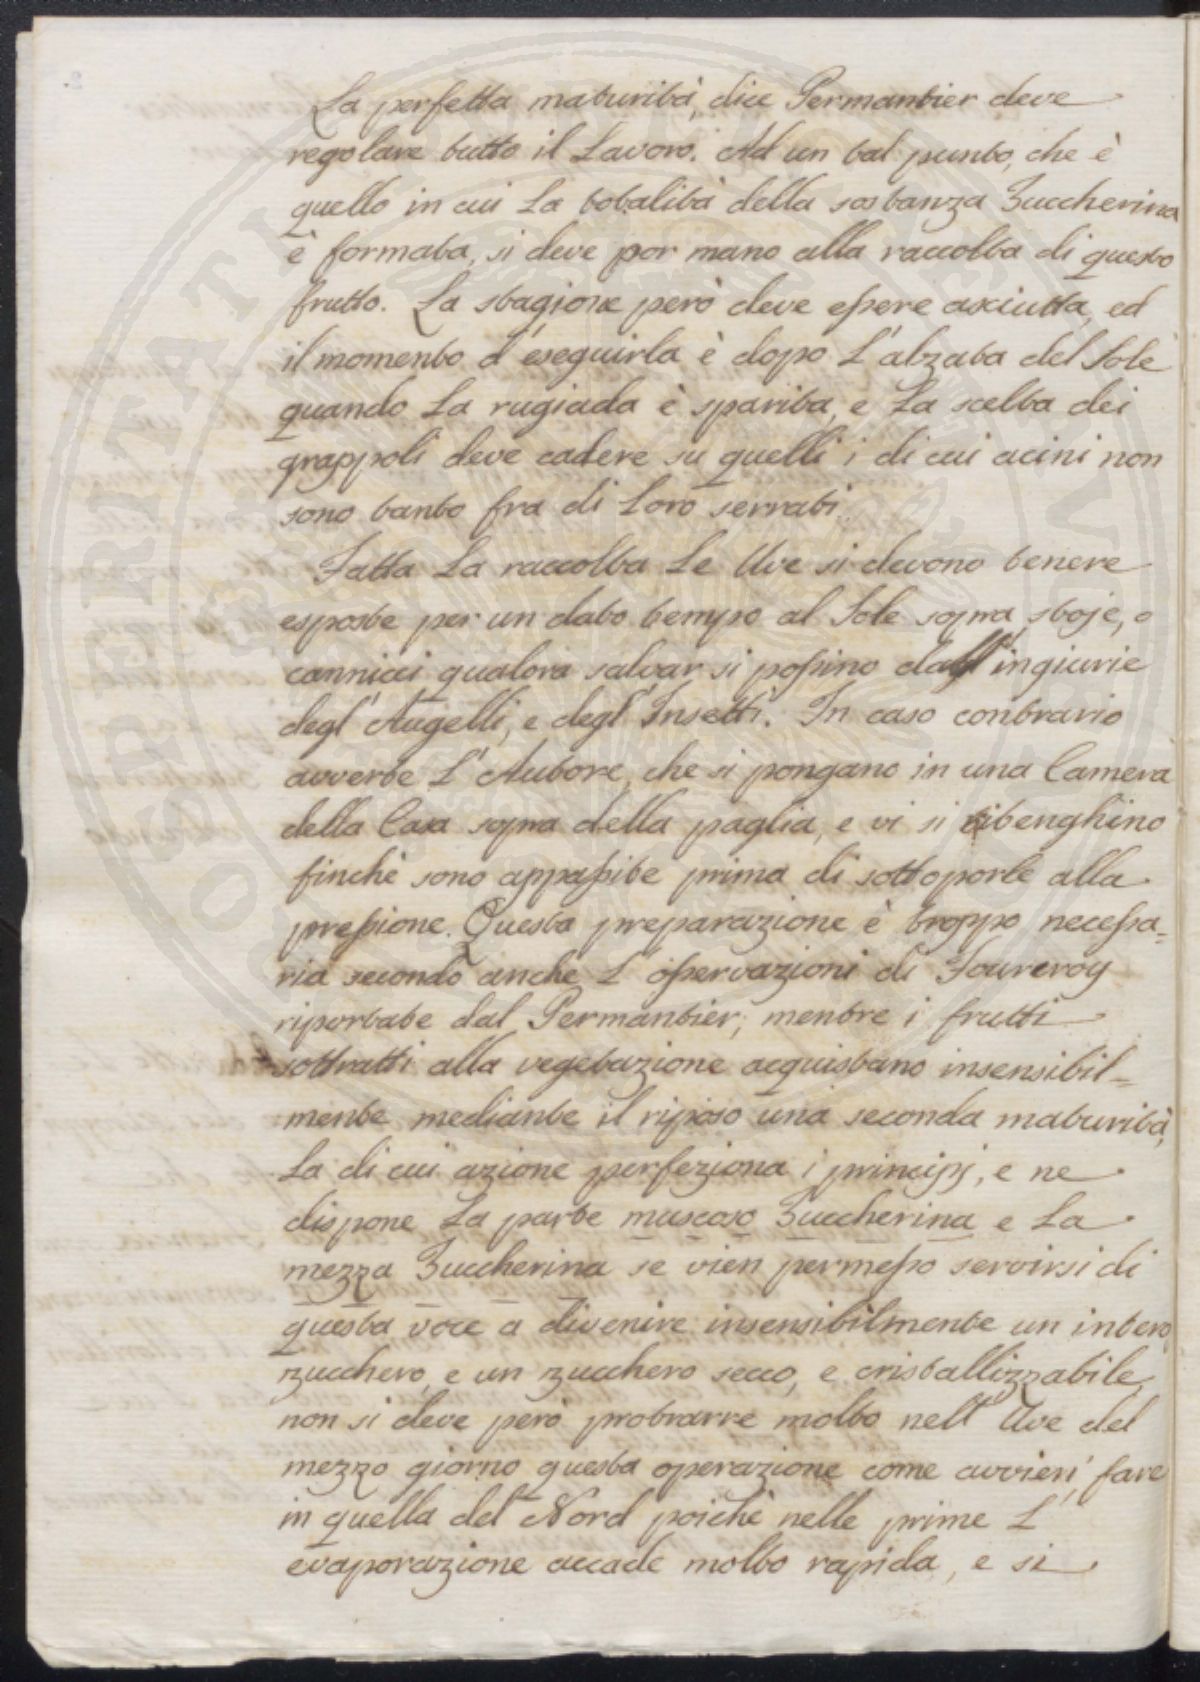 La perfetta maturità, dice Permantier deve
regolare tutto il Lavoro. Ad un tal punto, che è
quello in cui La totalità della sostanza Zuccherina
è formata, si deve por mano alla raccolta di questo
frutto. La stagione però deve essere asciutta, ed
il momento d'eseguirla è dopo L'alzata del Sole
quando La rugiada è sparita, e La scelta dei
grappoli deve cadere su quelli i di cui acini non
sono tanto fra di Loro serrati.
Fatta La raccolta Le Uve si devono tenere
esposte per un dato tempo al Sole sopra stoje, o
cannicci qualora salvar si possino dall'ingiurie
degl'Augelli, e degl'Insetti. In caso contrario
avverte L'Autore, che si pongano in una Camera
della Casa sopra della paglia, e vi si ritenghino
finchè sono appassite prima di sottoporle alla
pressione. Questa preparazione è troppo necessa=
ria secondo anche L'osservazioni di Fourcroy
riportate dal Permantier; mentre i frutti
sottratti alla vegetazione acquistano insensibil=
mente mediante il riposo una seconda maturità,
La di cui azione perfeziona i principj, e ne
dispone La parte muscoso Zuccherina e La
mezza Zuccherina se vien permesso servirsi di
questa voce a divenire insensibilmente un intero
zucchero, e un zucchero secco, e cristallizzabile,
non si deve però protrarre molto nell'Uve del
mezzo giorno questa operazione come avvien, fare
in quella del Nord poichè nelle prime L'
evaporazione accade molto rapida, e si